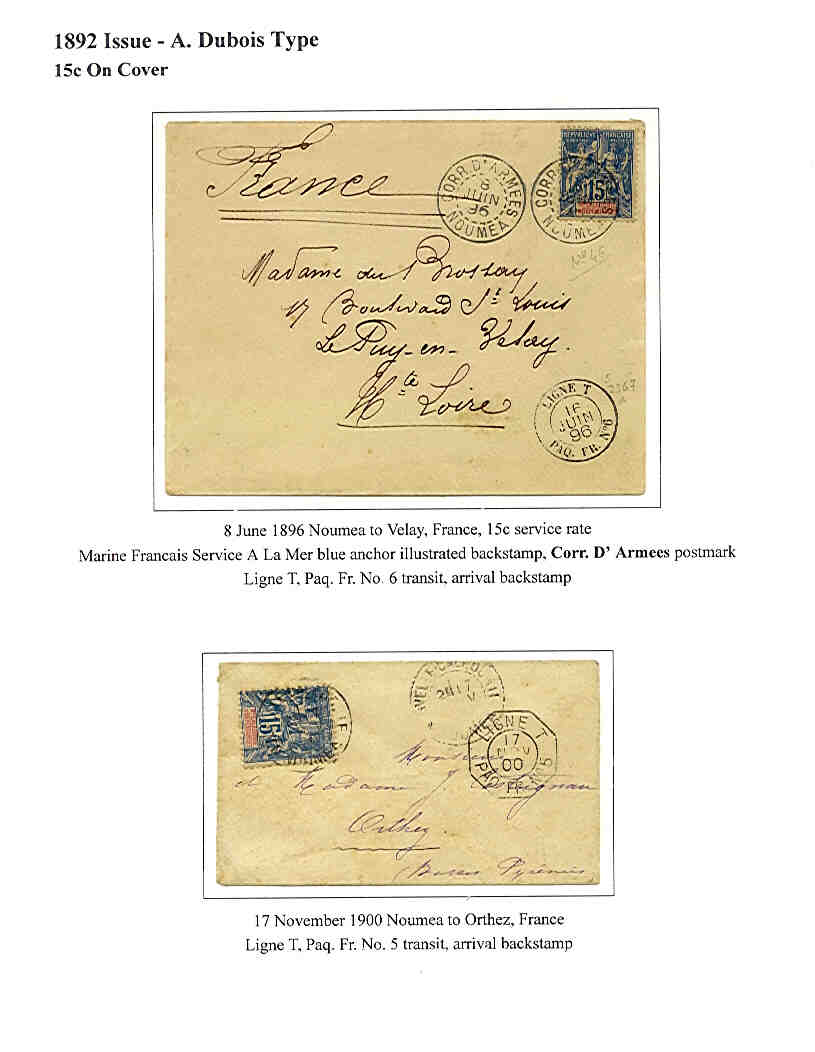 1892 Issue - A. Dubois Type
15c On Cover
REPUBLIQUE FRANÇAISE
15
France
CORR. D'ARMEES
8
JUIN
96
NOUMEA
CORR
NOUME
Nº 46
Madame du Brossay
17 Boulevard St Louis
Le Puy-en-Velay.
Hte Loire
2367
LIGNE T
16
JUIN
96
PAQ. FR. Nº6
8 June 1896 Noumea to Velay, France, 15c service rate
Marine Francais Service A La Mer blue anchor illustrated backstamp, Corr. D' Armees postmark
Ligne T, Paq. Fr. No. 6 transit, arrival backstamp
15
LIGNE T
17
NOV
00
PAQ FR. Nº5
Monsieur
et Madame J.
Orthez.
Basses Pyrénées
17 November 1900 Noumea to Orthez, France
Ligne T, Paq. Fr. No. 5 transit, arrival backstamp